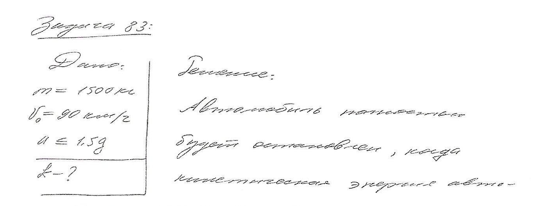 Задача 83:
Дано:
m = 1500 кг
V₀ = 90 км/г
a ≤ 1.5g
k - ?
Решение:
Автомобиль полностью
будет остановлен, когда
кинетическая энергия авто-